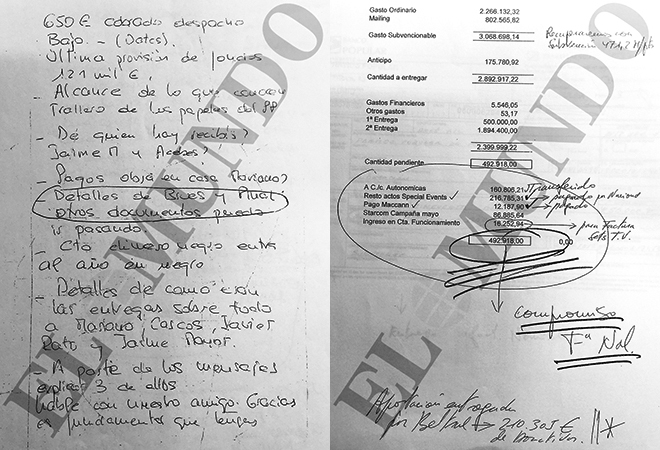 650 € cobrado despacho
Bajo. - (Dates).
Ultima provisión de fondos
121 mil €.
- Alcance de lo que conocen
Trallero de los papeles del PP
- De quien hay recibís?
Jaime M y Acebes?
- Pagos obra en casa Mariano?
- Detalles de Brues y Rual
otros documentos puedo
ir pasando.
- Cto dinero negro entra
al año en negro
- Detalles de como eran
las entregas sobre todo
a Mariano, Cascos, Javier
Rato, Jaime Mayor.
- A parte de los mensajes
explicar 3 de ellos
Hable con nuestro amigo. Gracias
es fundamental que tengas
Gasto Ordinario 2.266.132,32
Mailing 802.565,82
Gasto Subvencionable 3.068.698,14
Anticipo 175.780,92
Cantidad a entregar 2.892.917,22
Gastos Financieros 5.546,05
Otros gastos 53,17
1ª Entrega 500.000,00
2ª Entrega 1.894.400,00
2.399.999,22
Cantidad pendiente 492.918,00
A C./c. Autonomicas 160.806,21 Transferido
Resto actos Special Events 216.785,31 pagado por Nacional
Pago Maccann 12.187,90 pagado
Starcom Campaña mayo 86.885,64
Ingreso en Cta. Funcionamiento 16.252,94 para Factura
T.V.
492.918,00 0,00
Compromiso
Tª Nal.
Aportación entregada
por 210.305 €
de Donativos.
EL MUNDO
EL MUNDO